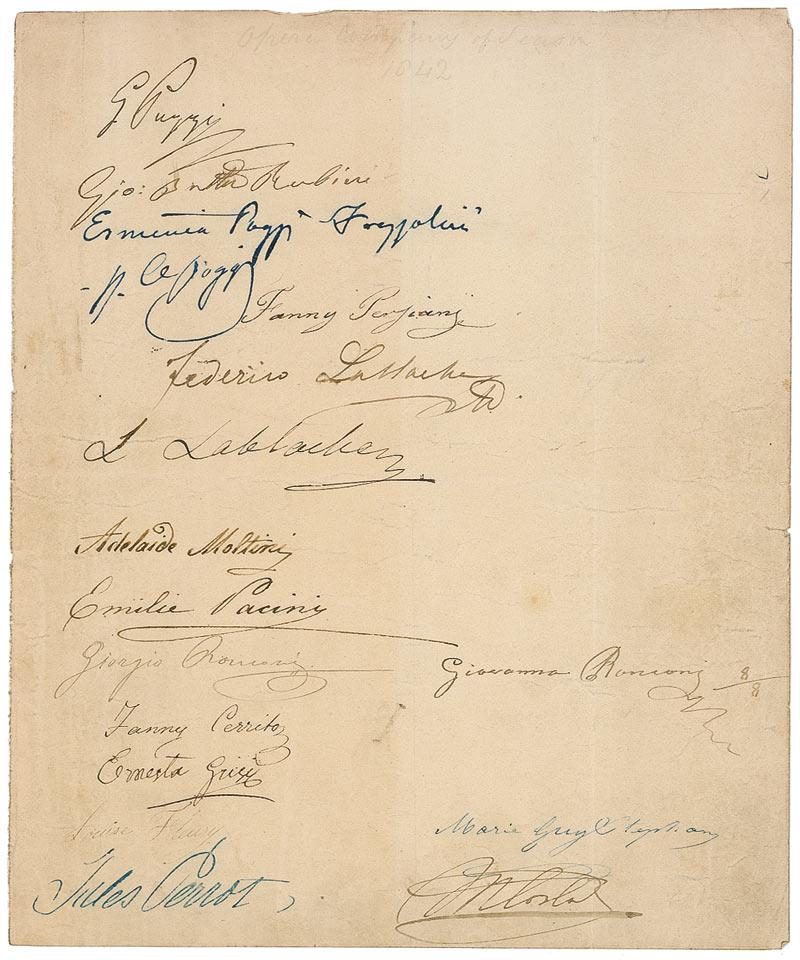 Opera Company of Season
1842
G Puzzi
Gio: Batta Rubini
Erminia Poggi Frezzolini
Poggi
Fanny Persiani
Federico Lablache
L Lablache
Adelaide Moltini
Emilie Pacini
Giorgio Ronconi
Giovanna Ronconi 8/8
Fanny Cerrito
Ernesta Grisi
Louise Fleury
Marie Guy Stephan
Jules Perrot
M Costa